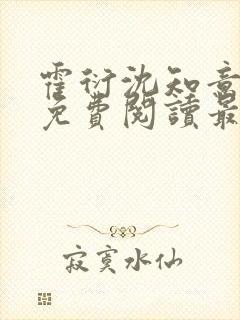 霍衍沈知意
免費閱讀最
寂寞水仙